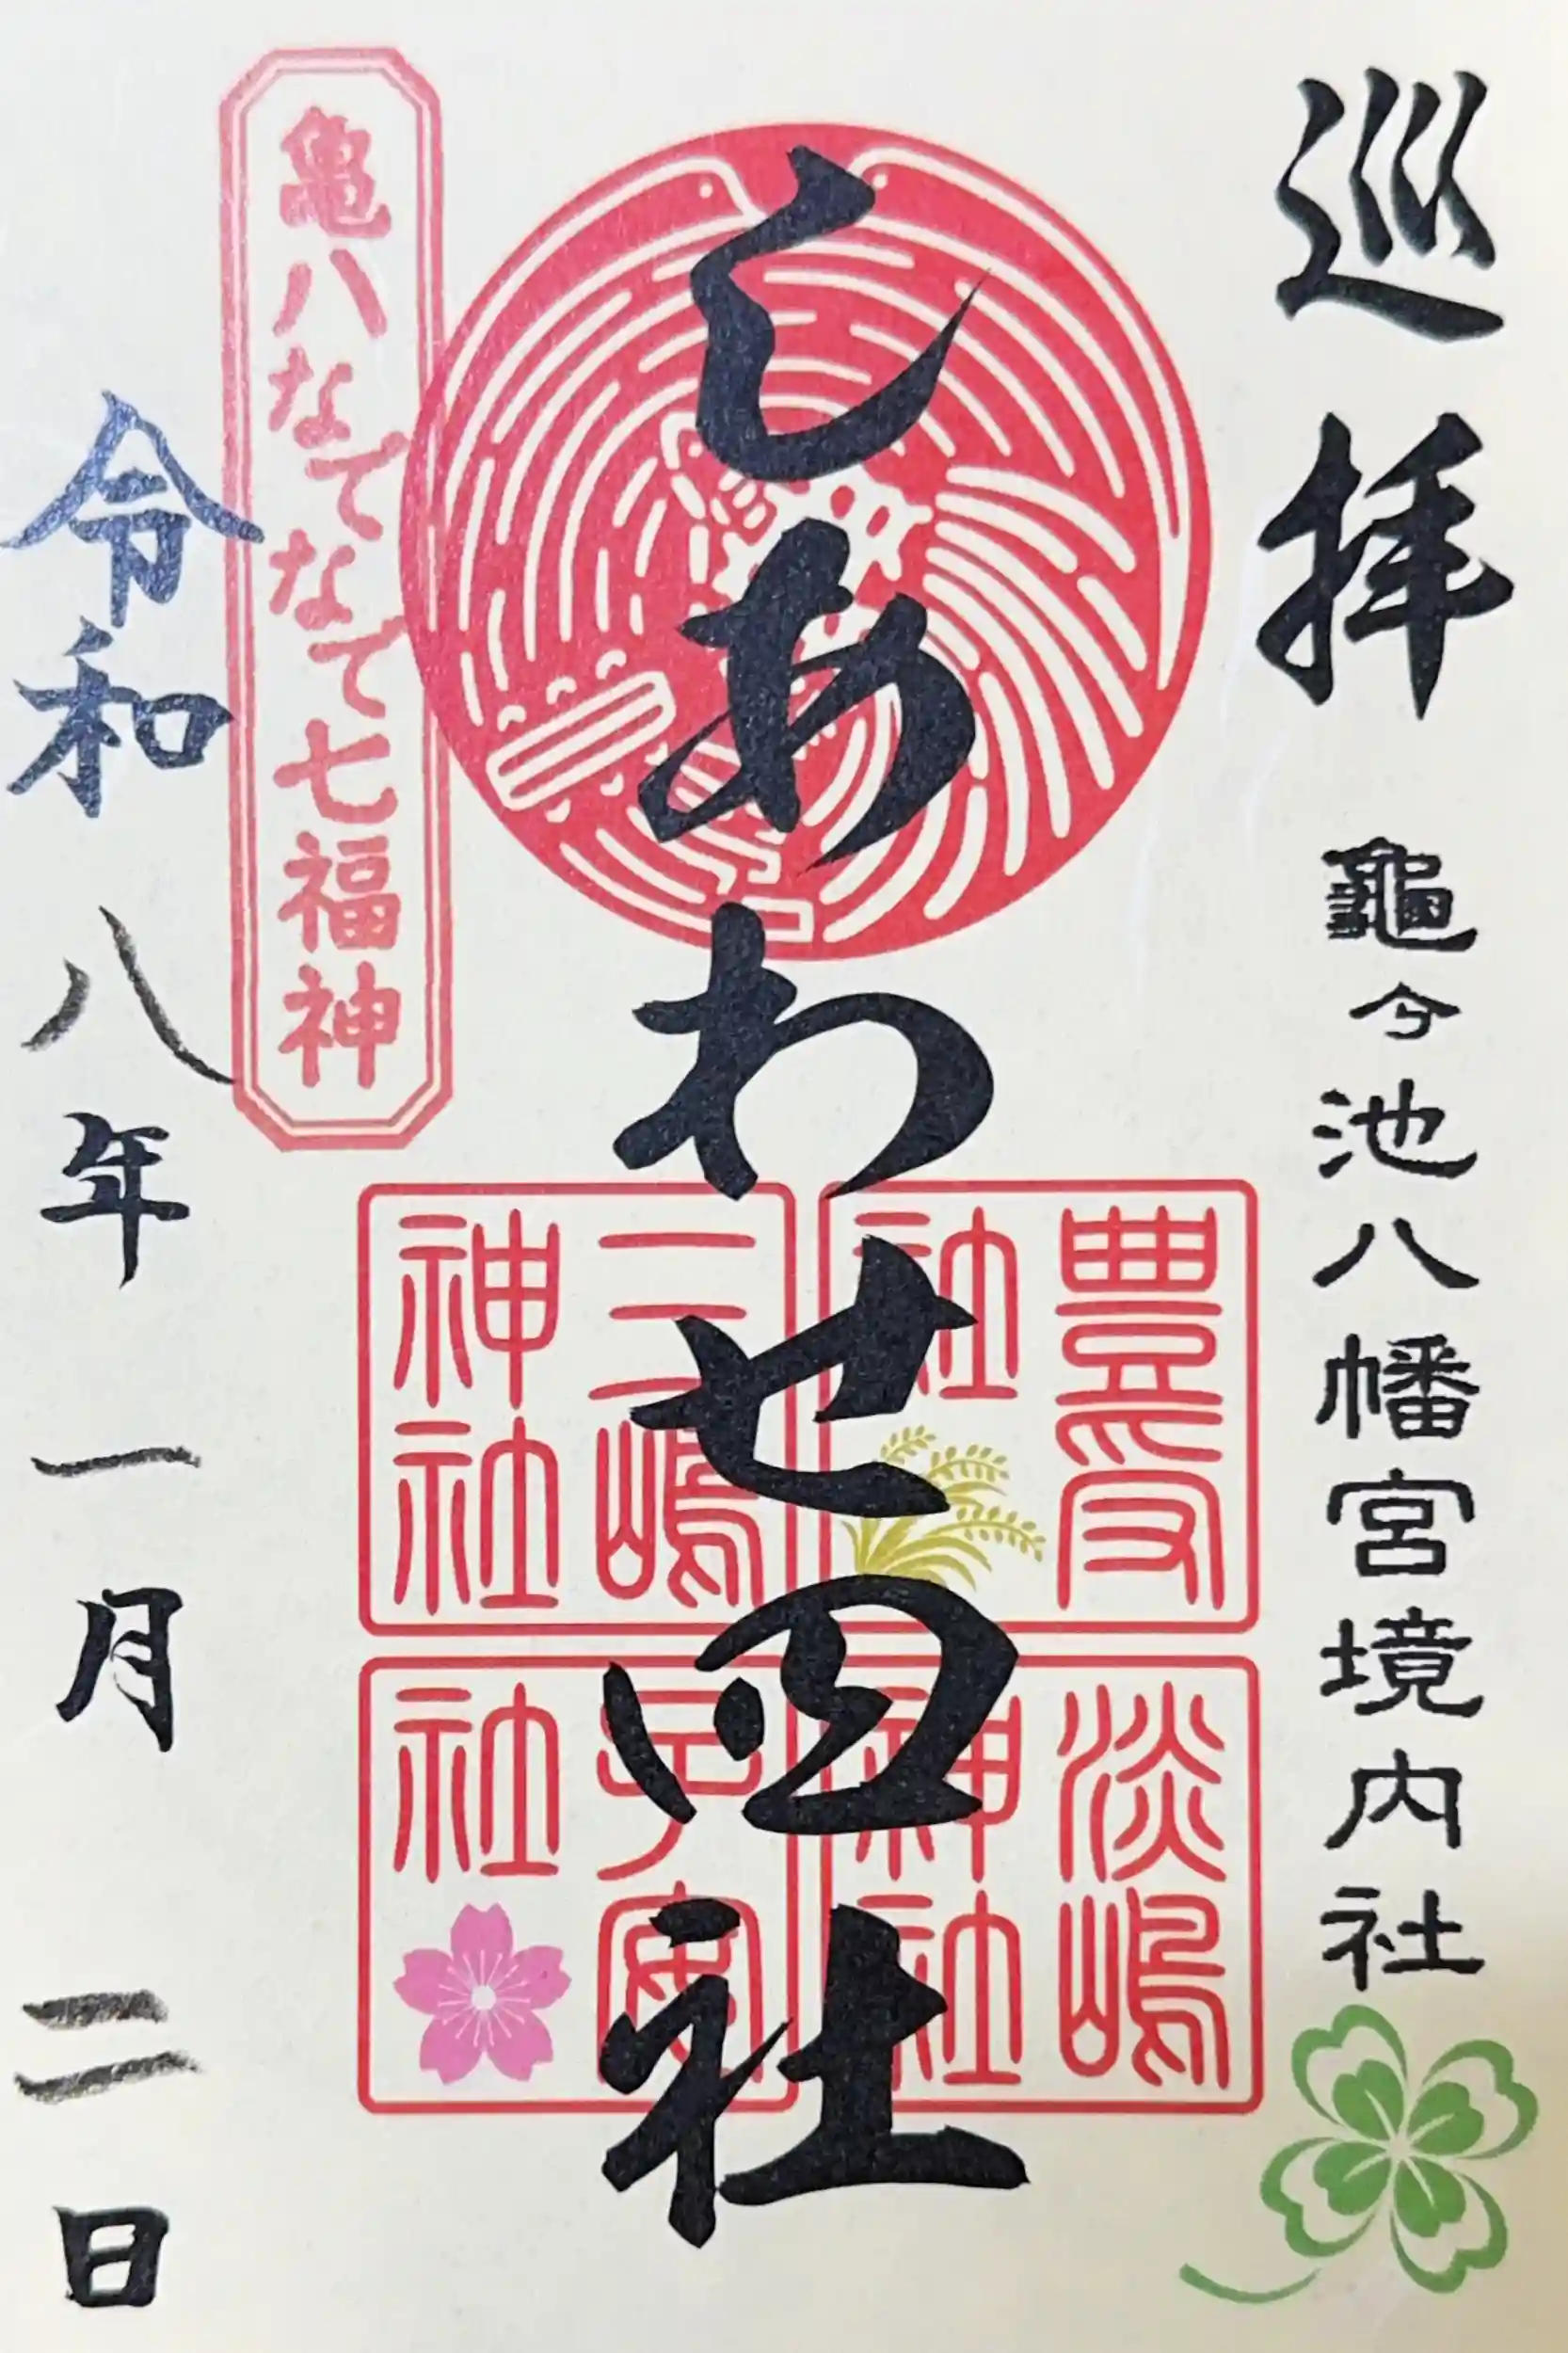 巡拝 龜ヶ池八幡宮境内社
しあわせ四社
豊受社
三嶋神社
淡嶋神社
子安社
亀八なでなで七福神
令和八年一月二日